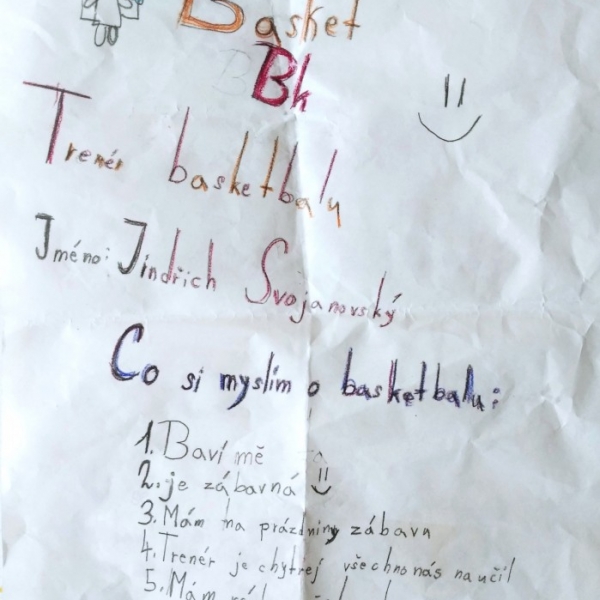 Basket
Bk
Trenér basketbalu
Jméno: Jindřich Svojanovský
Co si myslím o basketbalu:
1. Baví mě
2. je zábavná
3. Mám na prázdniny zábavu
4. Trenér je chytrej všechno nás naučil
5. Mám